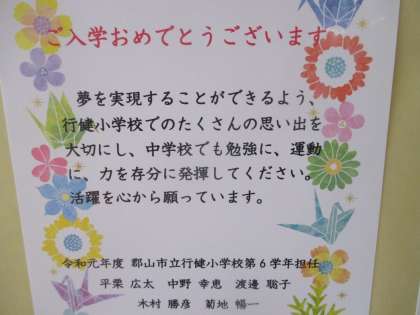 ご入学おめでとうございます
夢を実現することができるよう、
行健小学校でのたくさんの思い出を
大切にし、中学校でも勉強に、運動
に、力を存分に発揮してください。
活躍を心から願っています。
令和元年度 郡山市立行健小学校第6学年担任
平栗 広太 中野 幸恵 渡邊 聡子
木村 勝彦 菊地 暢一